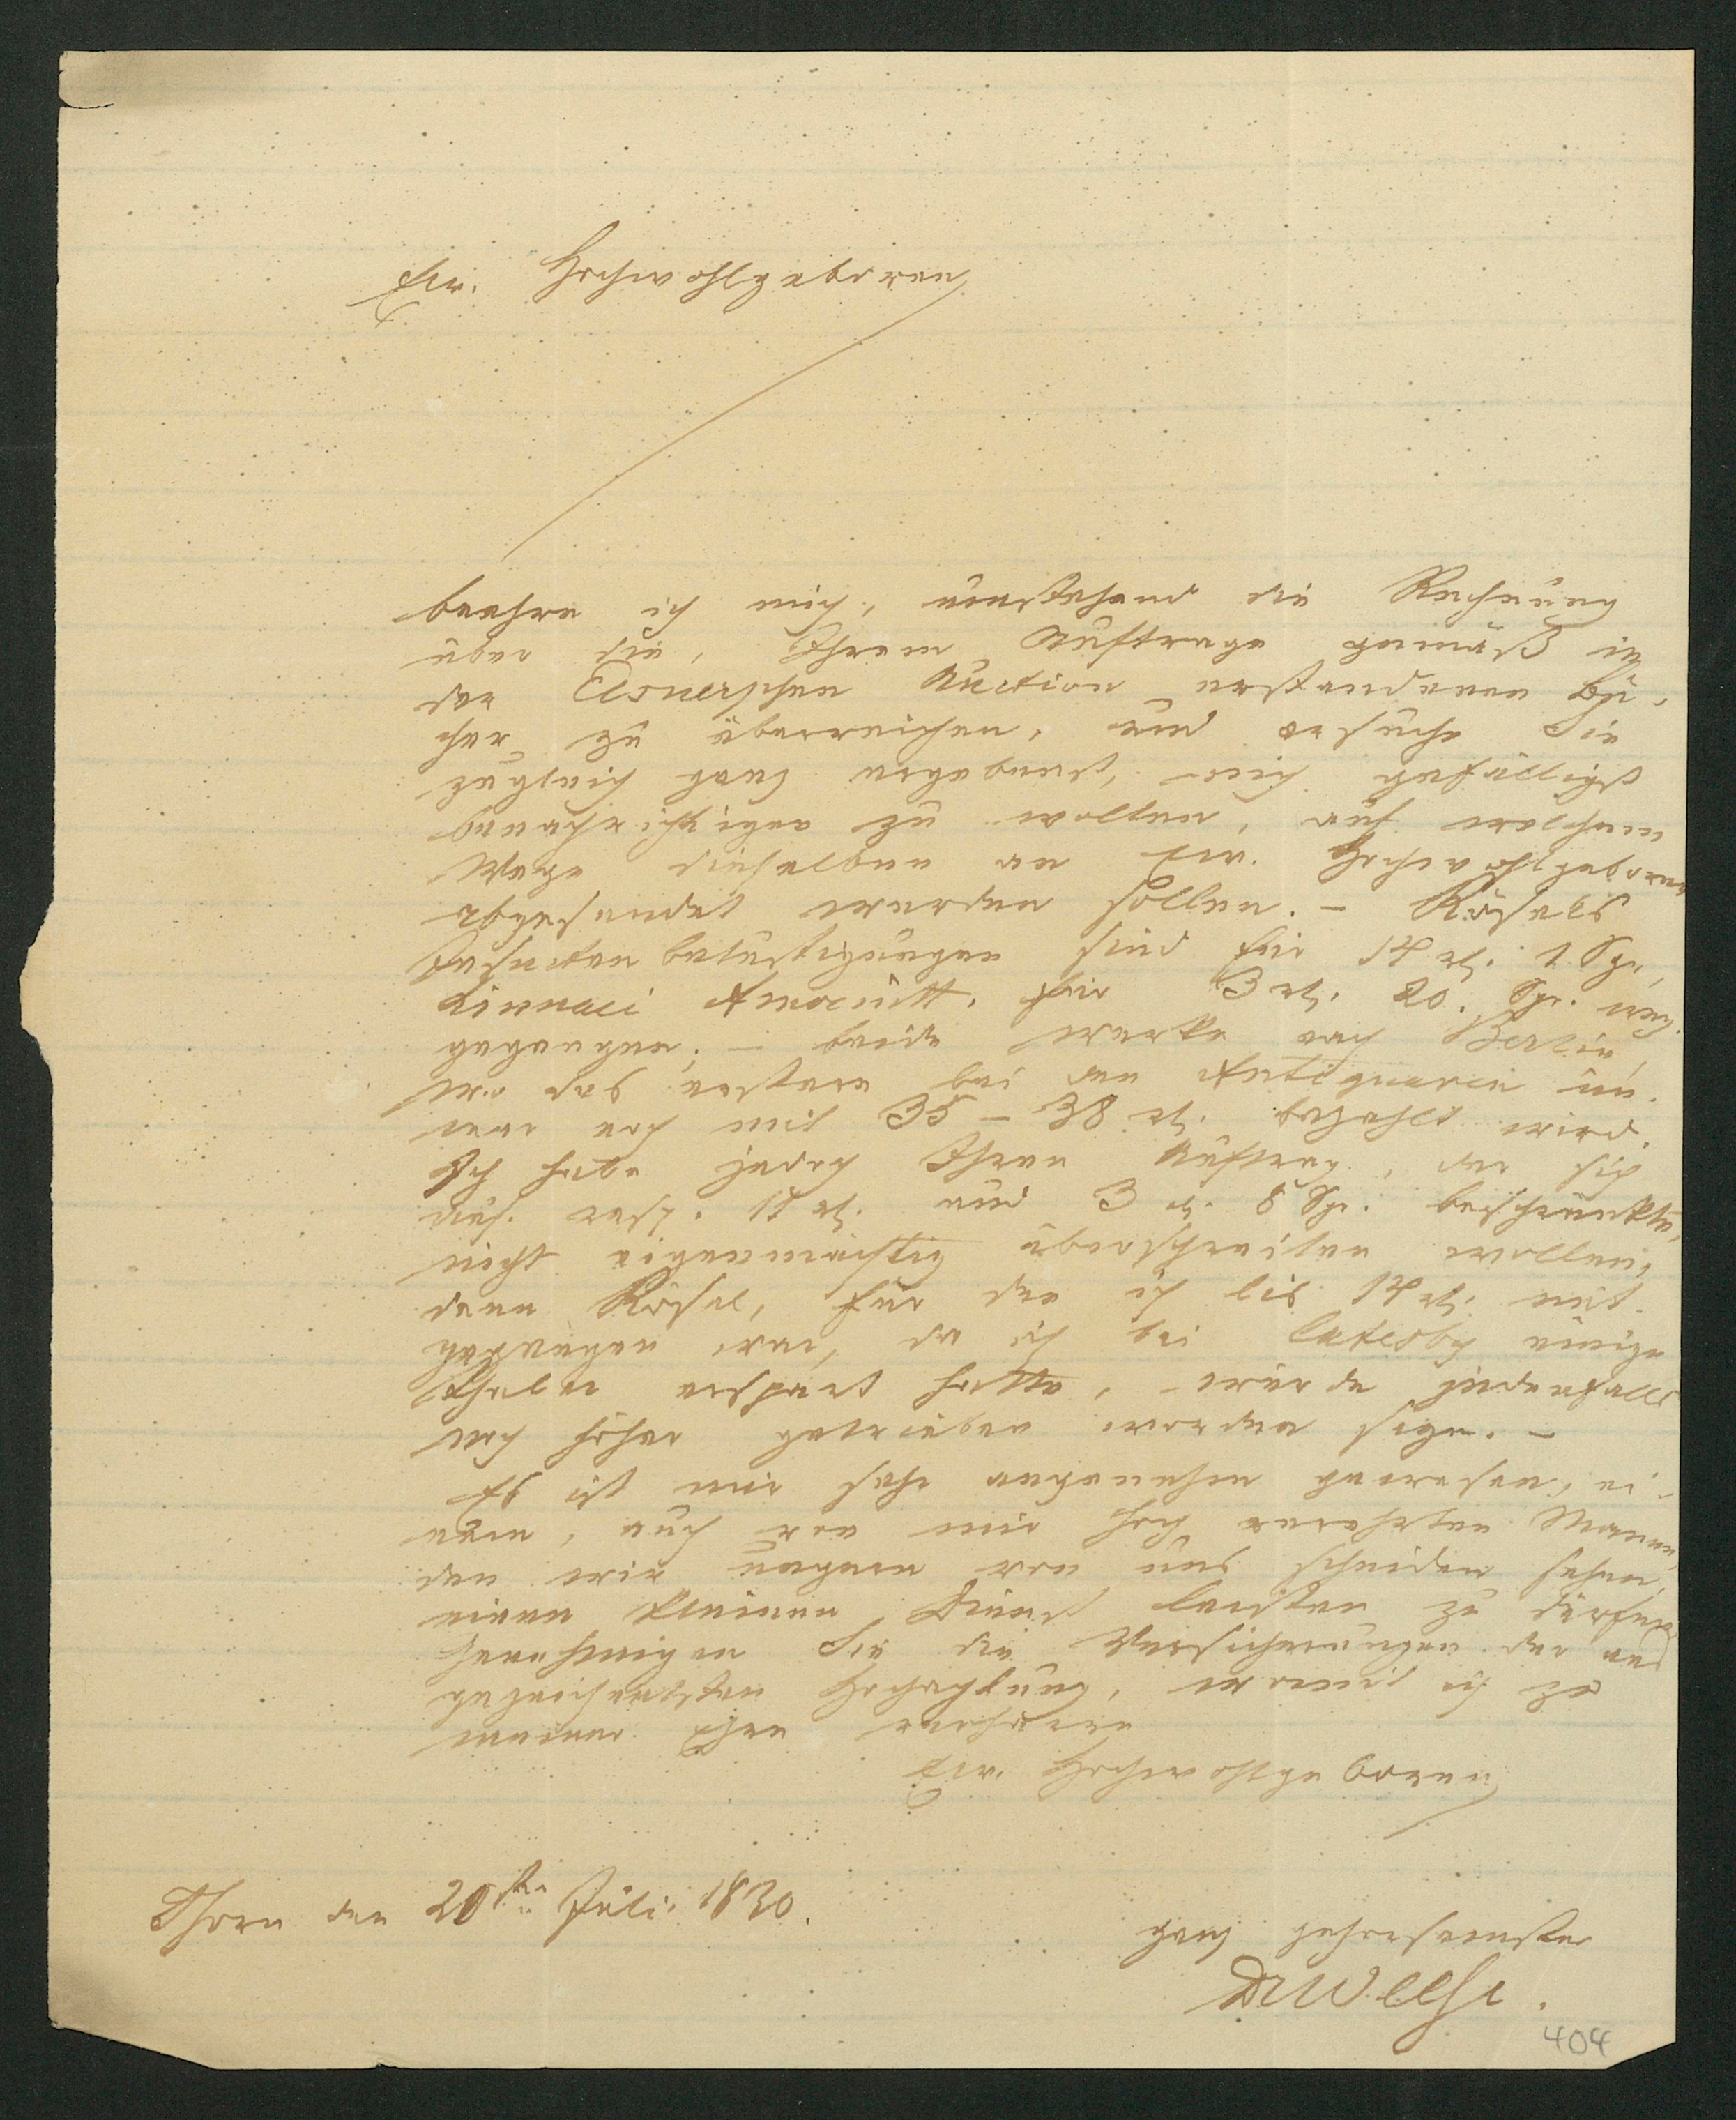 Ew. Hochwohlgeboren
beehre ich mich, umstehend die Rechnung
über die, Ihrem Auftrage gemäß in
der Elsnerschen Auction erstandenen Bü-
cher zu überreichen, und ersuche Sie
zugleich ganz ergebenst, mich gefälligst
benachrichtigen zu wollen, auf welchem
Wege dieselben an Ew. Hochwohlgeboren
abgesendet werden sollen. – Rösels
Insectenbelustigungen sind für 14 rth. 1 Sgr.,
Linnaei Amoenitt. für 3 rth. 20. Sgr. weg-
gegangen; – beide Werke nach Berlin,
wo das erstere bei den Antiquaren im-
mer noch mit 35 – 38 rth. bezahlt wird.
Ich habe jedoch Ihren Auftrag, der sich
auf resp. 11 rth. und 3 rth. 8 Sgr. beschränkte,
nicht eigenmächtig überschreiten wollen,
denn Rösel, für den ich bis 14 rth. mit-
gegangen war, da ich bei Catesby einige
Thaler erspart hatte, würde jedenfalls
noch höher getrieben worden sein. –
Es ist mir sehr angenehm gewesen, ei-
nem, auch von mir hoch verehrten Manne,
den wir ungern von uns scheiden sehen,
einen kleinen Dienst leisten zu dürfen.
Genehmigen Sie die Versicherungen der aus
gezeichnetsten Hochachtung, womit ich zu
meiner Ehre verharre
Ew. Hochwohlgeboren
Thorn den 20sten Juli 1830.
ganz gehorsamster
Dr Weese.
404